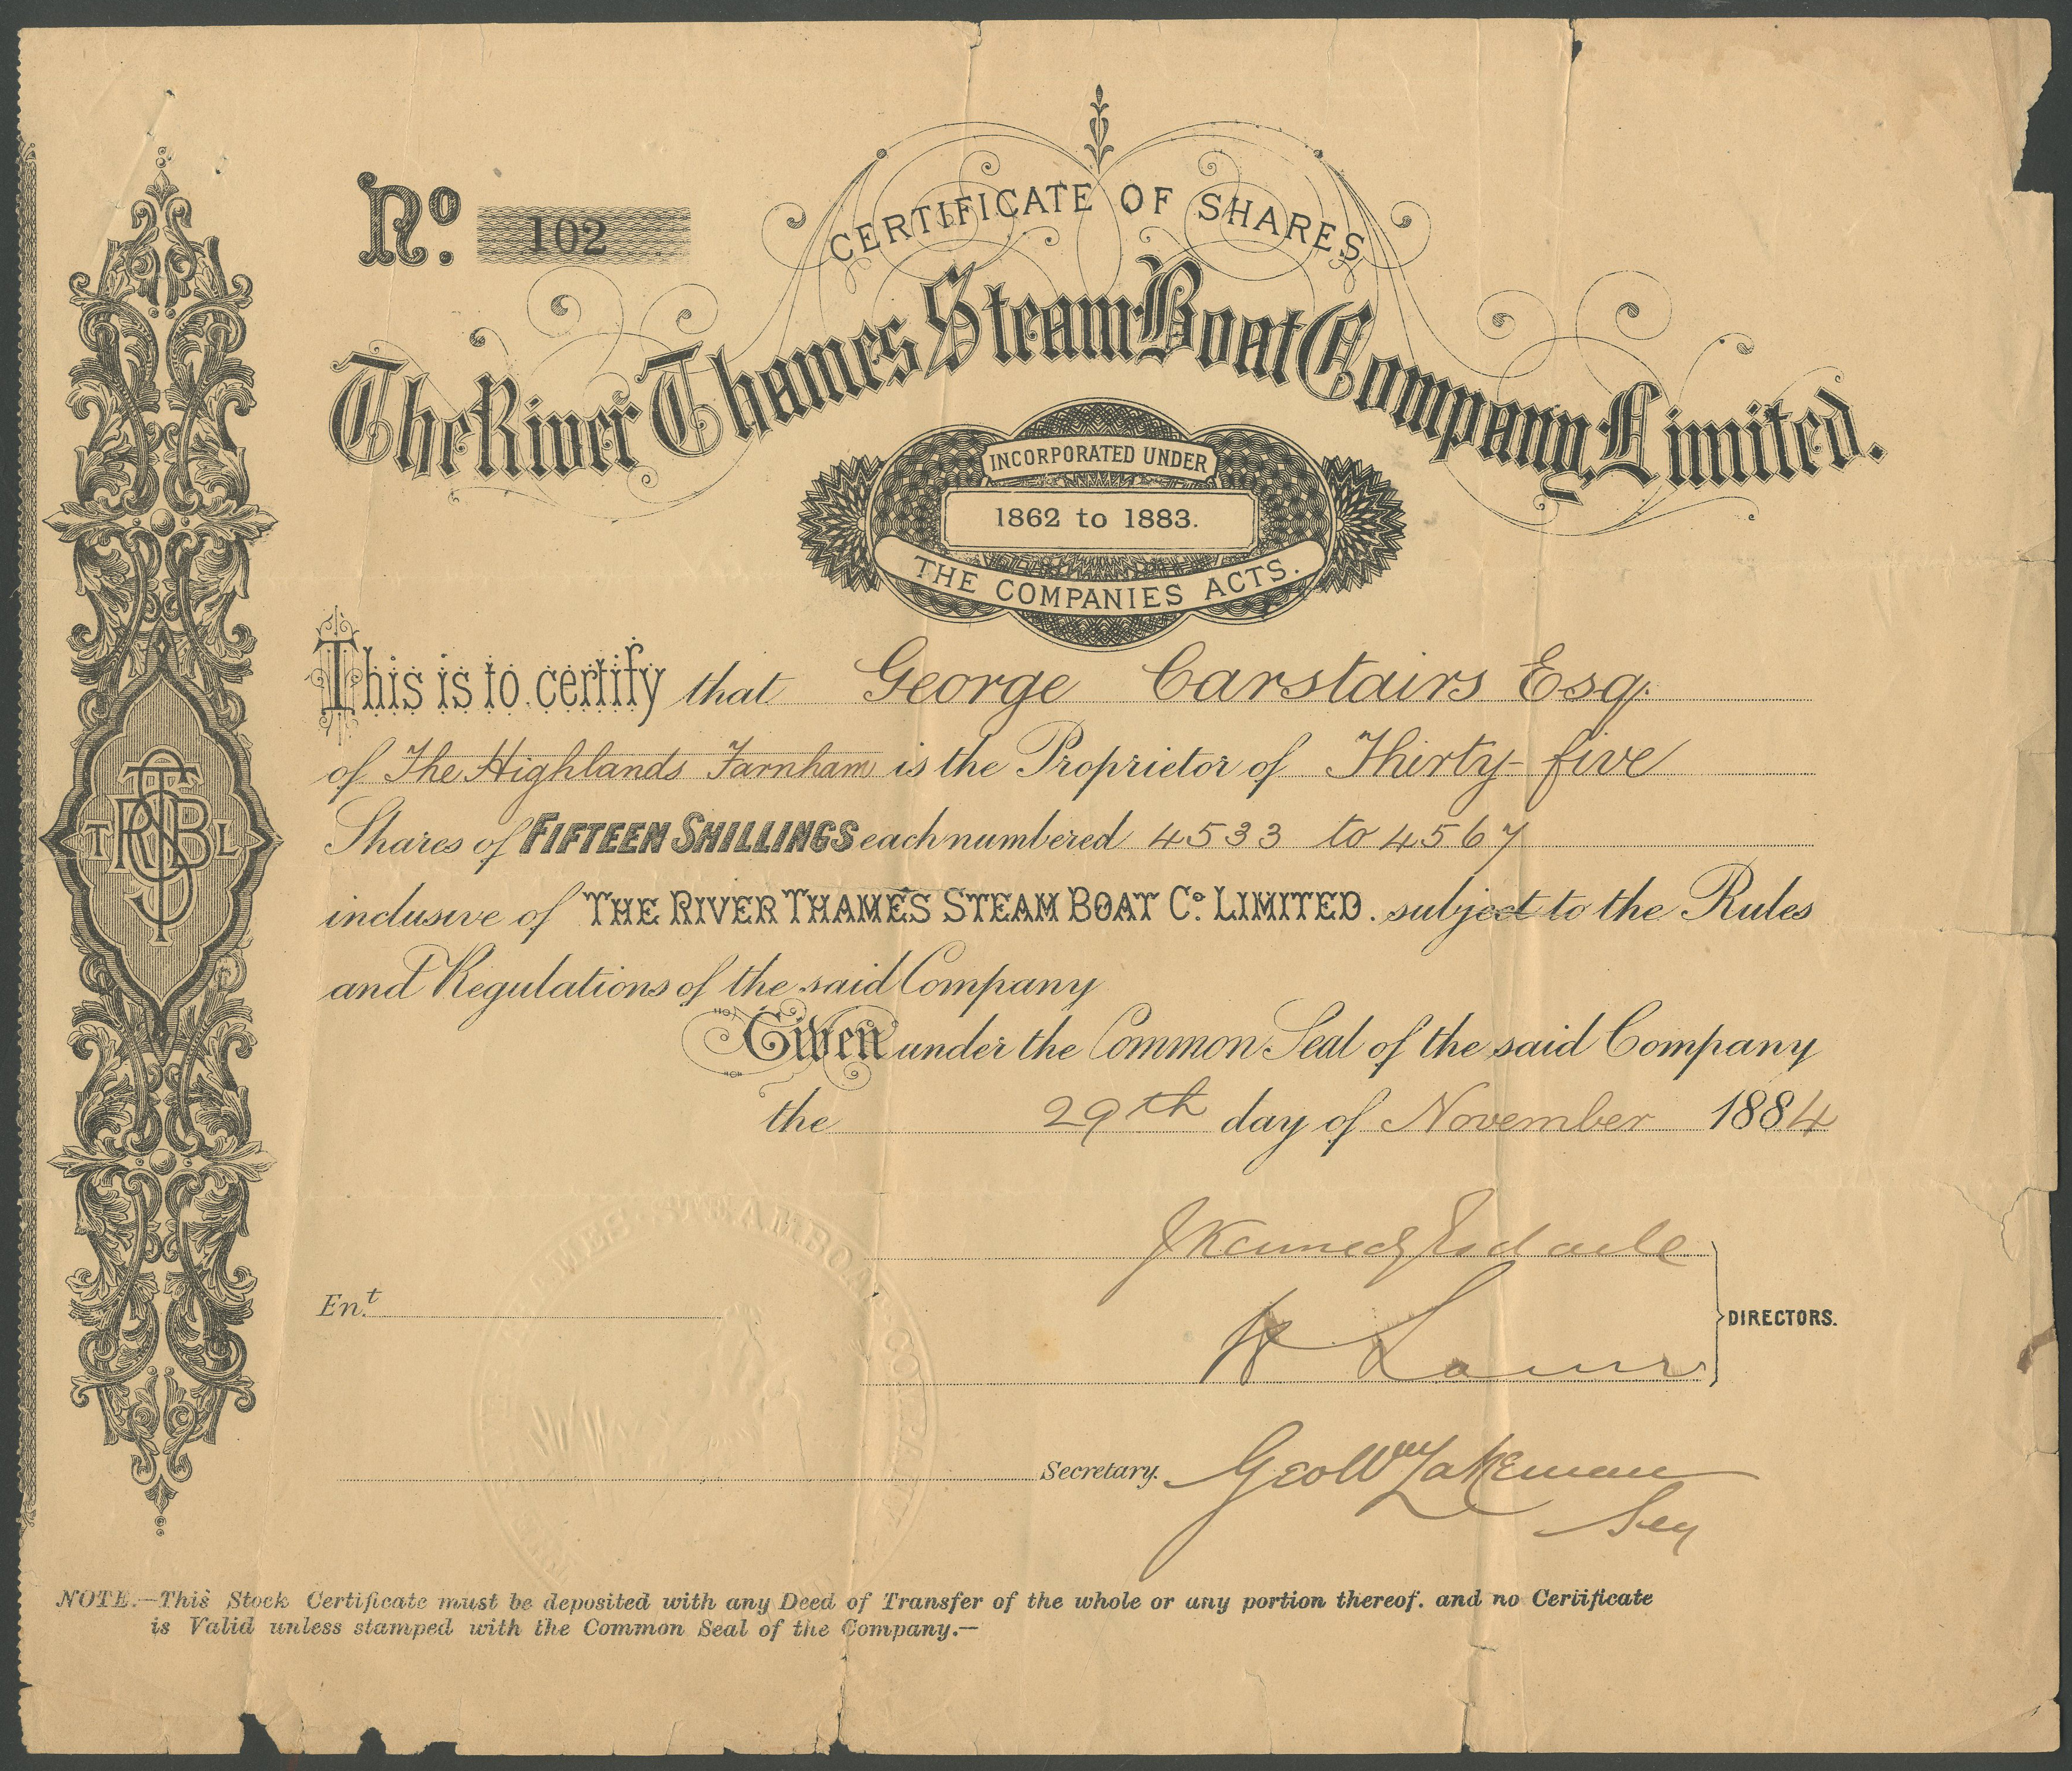 No. 102
CERTIFICATE OF SHARES
The River Thames Steam Boat Company, Limited.
INCORPORATED UNDER
1862 to 1883.
THE COMPANIES ACTS.
This is to certify that George Carstairs Esq.
of The Highlands Farnham is the Proprietor of Thirty-five
Shares of FIFTEEN SHILLINGS each numbered 4533 to 4567
inclusive of THE RIVER THAMES STEAM BOAT Co. LIMITED. subject to the Rules
and Regulations of the said Company
Given under the Common Seal of the said Company
the 29th day of November 1884
J Kennedy Esdaile
Ent.
DIRECTORS.
Secretary. Geo Wm Lakeman
Secy
THAMES STEAMBOAT COMPANY
NOTE.—This Stock Certificate must be deposited with any Deed of Transfer of the whole or any portion thereof. and no Certificate
is Valid unless stamped with the Common Seal of the Company.—